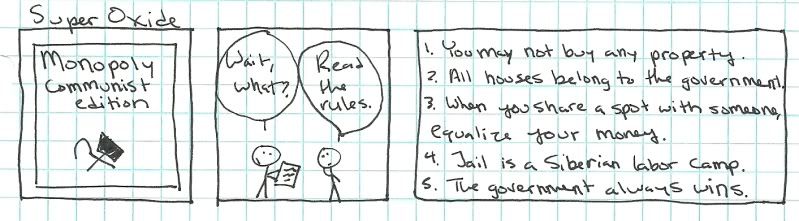 Super Oxide
Monopoly
Communist
edition
Wait,
what?
Read
the
rules.
1. You may not buy any property.
2. All houses belong to the government.
3. When you share a spot with someone,
equalize your money.
4. Jail is a Siberian labor camp.
5. The government always wins.